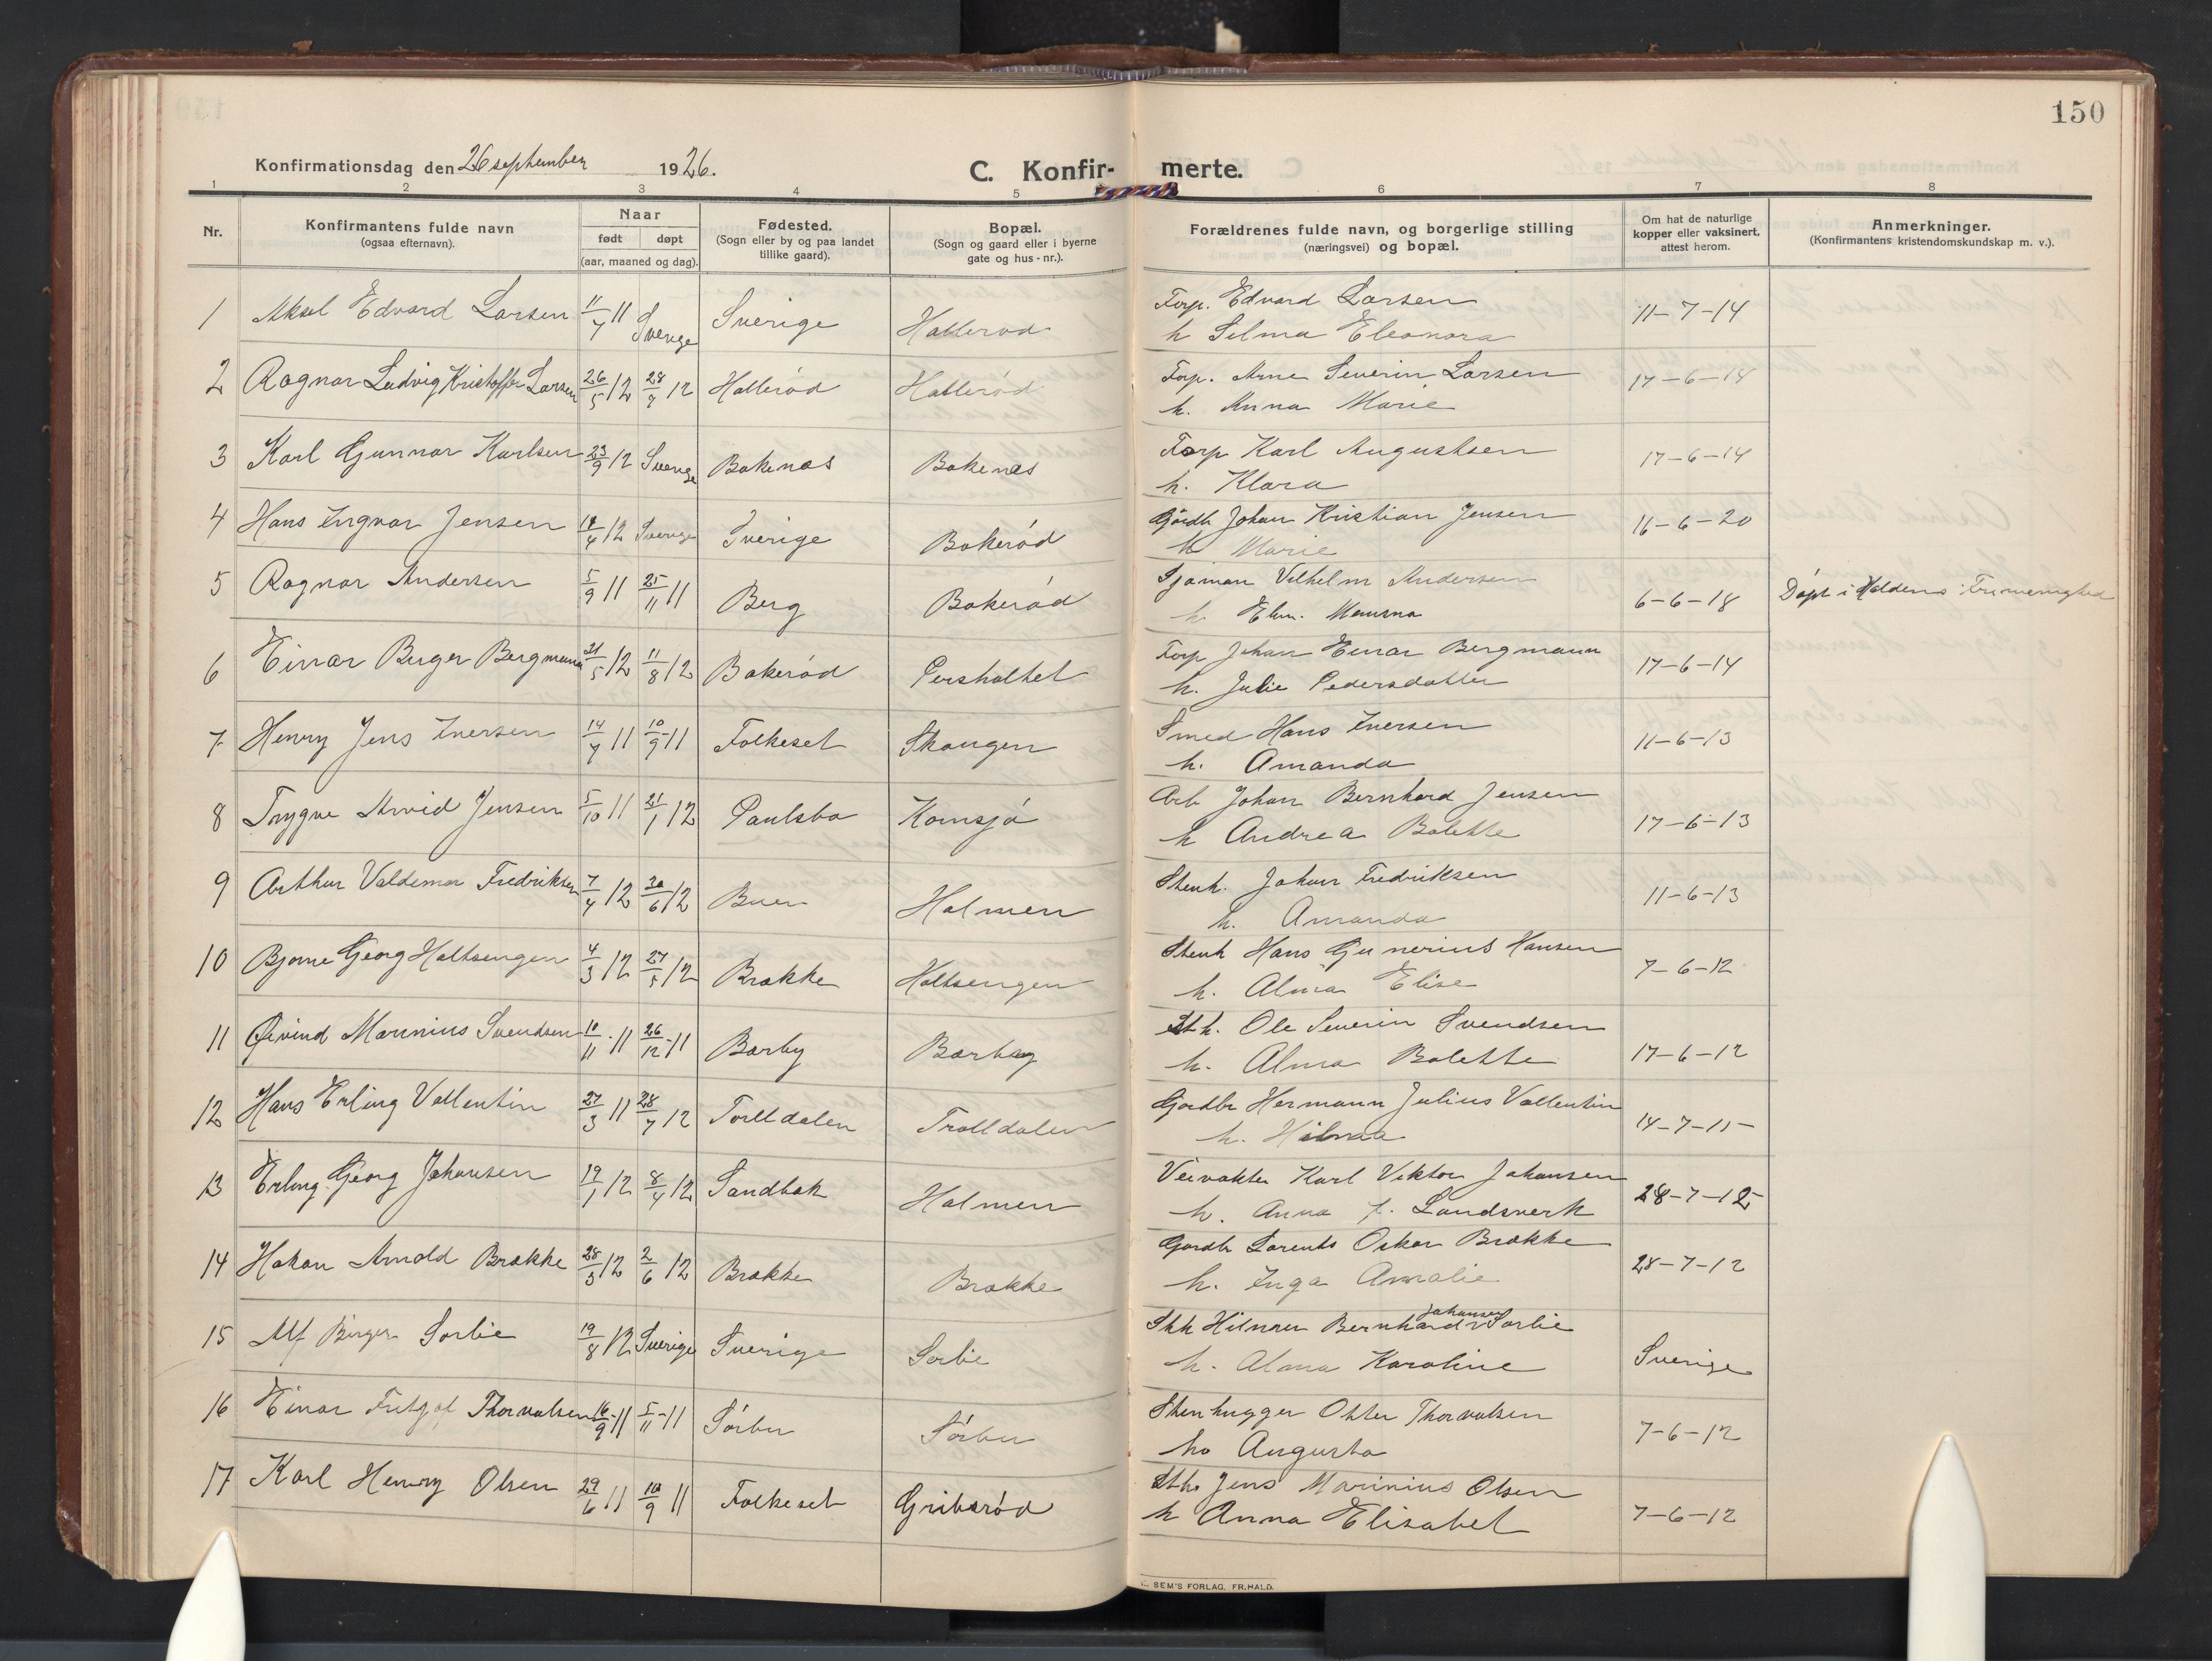 150
Konfirmationsdag den 26 september 1926.
C. Konfir- merte.
1 2 3 4 5 6 7 8
Nr.
Konfirmantens fulde navn
(ogsaa efternavn).
Naar
født døpt
(aar, maaned og dag).
Fødested.
(Sogn eller by og paa landet
tillike gaard).
Bopæl.
(Sogn og gaard eller i byerne
gate og hus-nr.).
Forældrenes fulde navn, og borgerlige stilling
(næringsvei) og bopæl.
Om hat de naturlige
kopper eller vaksinert,
attest herom.
Anmerkninger.
(Konfirmantens kristendomskundskap m. v.).
1 Aksel Edvard Larsen 11/7 11 Sverige Sverige Hallerød Forp. Edvard Larsen 11-7-14
h Selma Eleonora
2 Ragnar Ludvig Kristoffer Larsen 26/5 12 28/7 12 Hallerød Hallerød Forp. Arne Severin Larsen 17-6-14
h. Anna Marie
3 Karl Gunnar Karlsen 23/9 12 Sverige Bakenæs Bakenæs Forp Karl Augustsen 17-6-14
h. Klara
4 Hans Ingvar Jensen /4 12 Sverige Sverige Bokerød Gårdbr Johan Kristian Jensen 16-6-20
h Marie
5 Ragnar Andersen 5/9 11 25/11 11 Berg Bokerød Sjøman Vilhelm Andersen 6-6-18 Døpt i Haldens Frimenighed
h.
6 Einar Birger Bergmann 21/5 12 11/8 12 Bokerød Persholtet Forp Johan Einar Bergmann 17-6-14
h. Julie Pedersdatter
7 Henry Jens Iversen 14/7 11 10/9 11 Folkeset Skaugen Smed Hans Iversen 11-6-13
h. Amanda
8 Trygve Arvid Jensen 5/10 11 21/1 12 Paulsbo Kornsjø Arb Johan Bernhard Jensen 17-6-13
h Andrea Bolette
9 Arthur Valdemar Fredriksen 7/4 12 30/6 12 Buer Holmen Stenh. Johan Fredriksen 11-6-13
h. Amanda
10 Bjarne Georg Holtsengen 4/3 12 27/5 12 Brække Holtsengen Stenh Hans Gunerius Hansen 7-6-12
h. Alma Elise
11 Øivind Marinius Svendsen 10/11 11 26/12 11 Barby Barby Sth. Ole Severin Svendsen 17-6-12
h. Alma Bolette
12 Hans Erling Vallentin 27/3 11 28/7 12 Torlldalen Trolldalen Gårdbr Hermann Julius Vallentin 14-7-15
h. Hilmaa
13 Erling Georg Johansen 19/1 12 8/4 12 Sandbæk Holmen Veivokter Karl Viktor Johansen 28-7-12
h. Anna f. Landsverk
14 Hakon Arnold Brække 28/3 12 2/6 12 Brække Brække Gårdbr Lorents Oskar Brække 28-7-12
h. Inga Amalie
15 Alf Birger Sorlie 19/8 12 Sverige Sverige Sorlie Sth Hilmer Bernhard Johansen Sorlie Sverige
h. Alma Karoline
16 Einar Fritgof Thorvalsen 16/9 11 5/11 11 Sörbu Sörbu Stenhugger Otter Thorvalsen 7-6-12
ho Augusta
17 Karl Henry Olsen 29/6 11 10/9 11 Folkeset Gribsrød Sth Jens Marinius Olsen 7-6-12
h Anna Elisabet
SEM'S FORLAG, FR.HALD.